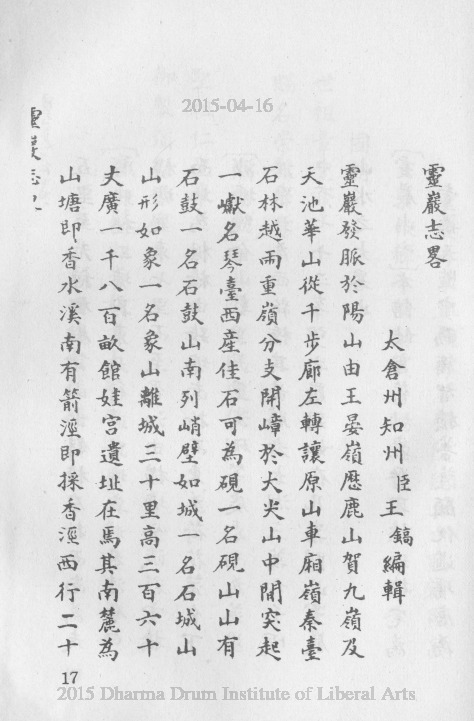 2015-04-16
靈巖志畧
太倉州知州臣王鎬編輯
靈巖發脈於陽山由王晏嶺歷鹿山賀九嶺及
天池華山從千步廊左轉讓原山車廂嶺秦臺
石林越兩重嶺分支開嶂於大尖山中間突起
一巘名琴臺西産佳石可為硯一名硯山山有
石鼓一名石鼓山南列峭壁如城一名石城山
山形如象一名象山離城三十里高三百六十
丈廣一千八百畝館娃宮遺址在焉其南麓為
山塘即香水溪南有箭涇即採香涇西行二十
靈巖志
17
2015 Dharma Drum Institute of Liberal Arts